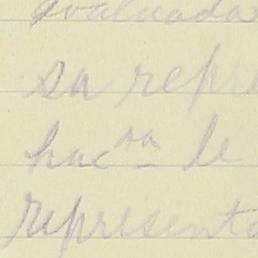 evaluada
sa repre
hac^na le
representa